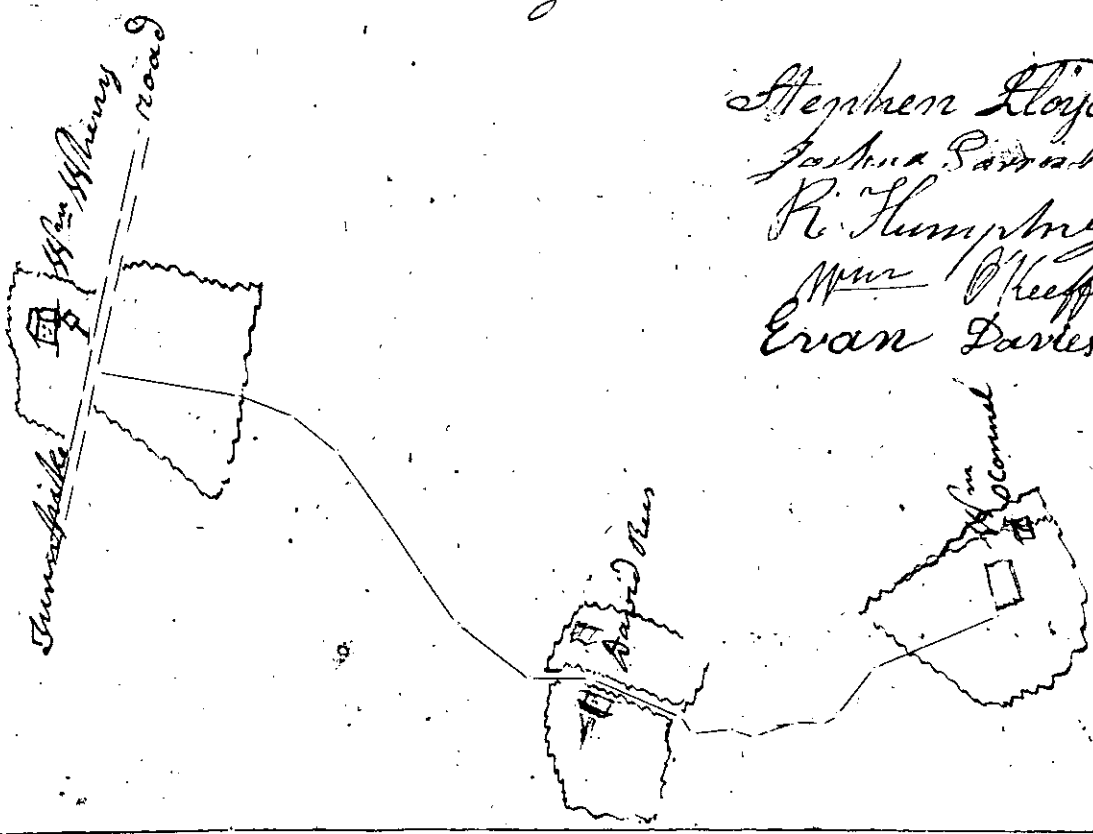 Stephen Lloyd
Joshua
R. Humphrey
Wm O'Keeff
Evan Davies
Wm Wherry
Turnpike road
David Rees
Wm OConnel